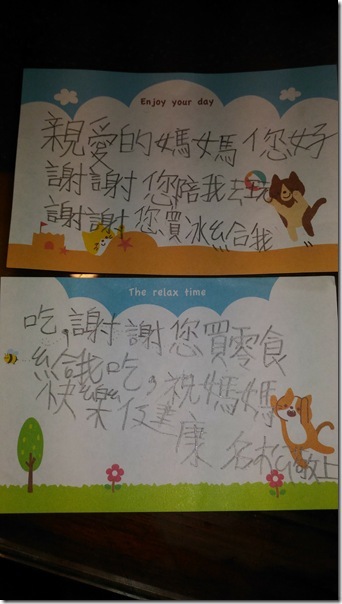 Enjoy your day
親愛的媽媽您好
謝謝您陪我去玩
謝謝您買冰給我
The relax time
吃,謝謝您買零食
給我吃,祝媽媽
快樂健
康 敬上